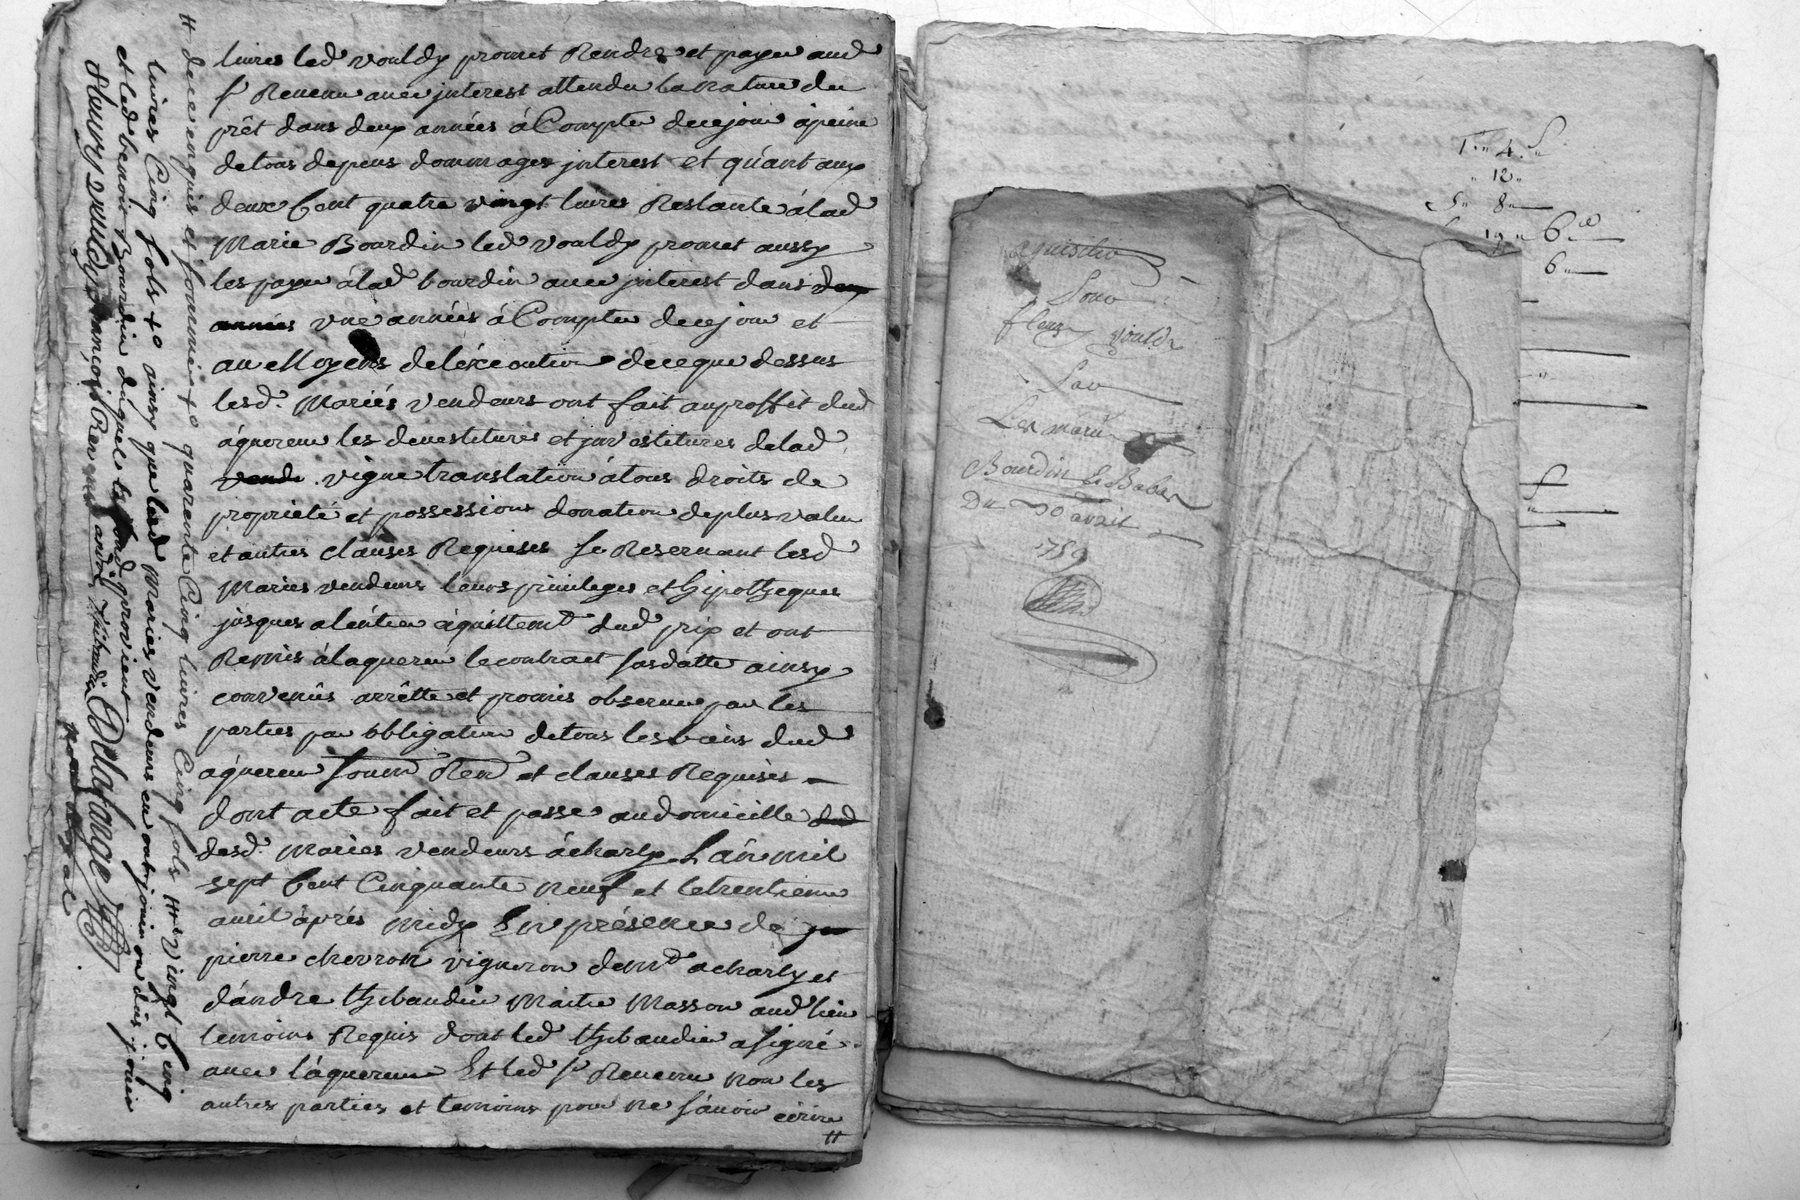 livres led vouldy promet Rendre et payer aud
sr Revenu avec interest attendu la nature du
prêt dans deux années à Compter de ce jour à peine
de tous depens dommages interest et quant aux
deux Cent quatre vingt livres Restante à lad
Marie Bourdin led vouldy promet aussy
les payer à lad bourdin avec interest dans deux
années une année à Compter de ce jour et
au Moyens de l'éxécution de ce que dessus
lesd. Mariés vendeurs ont fait au proffit dud
áquereur les devestitures et investitures de lad.
vende vigne translation à tous droits de
propriété et possessions donation de plus valeu
et autres clauses Requises se Reservant lesd
Mariés vendeurs leurs privileges et hipotheques
jusques a léntier aquittemt dud prix et ont
Remis à laquereur le contract susdatte ainsy
convenûs arrêtté et promis observer par les
parties par obbligation de tous les biens dud
áquereur soumn Renn et clauses Requises
dont acte fait et passé au domicille dud
desd. Mariés vendeurs à charly L'an mil
sept Cent Cinquante neuf et le trentieme
avril âprés midy En présence de
pierre chevron vigneron demt a charly et
d'andre thibaudin Maitre Masson aud lieu
temoins Requis dont led thibaudin a signé
avec l'áquereur Et led sr Revenu non les
autres parties et temoins pour ne sçavoir écrire
#
# de ce enquis et sommés +° quarente Cinq livres Cinq sols # vingt Cinq
livres Cinq sols +° ainsy que lesd Mariés vendeurs en ont joui ou dûs joüir
et led benoit Bourdin duquel le fond provient
fleury vouldy françois Revenu andré thibaudin Delafonge
aquisition
Pour
fleury vouldy
Par
Les mariés
Bourdin &
Du 30 avril
1759
1" 4 s
" 12"
8"
19" 6d
6"